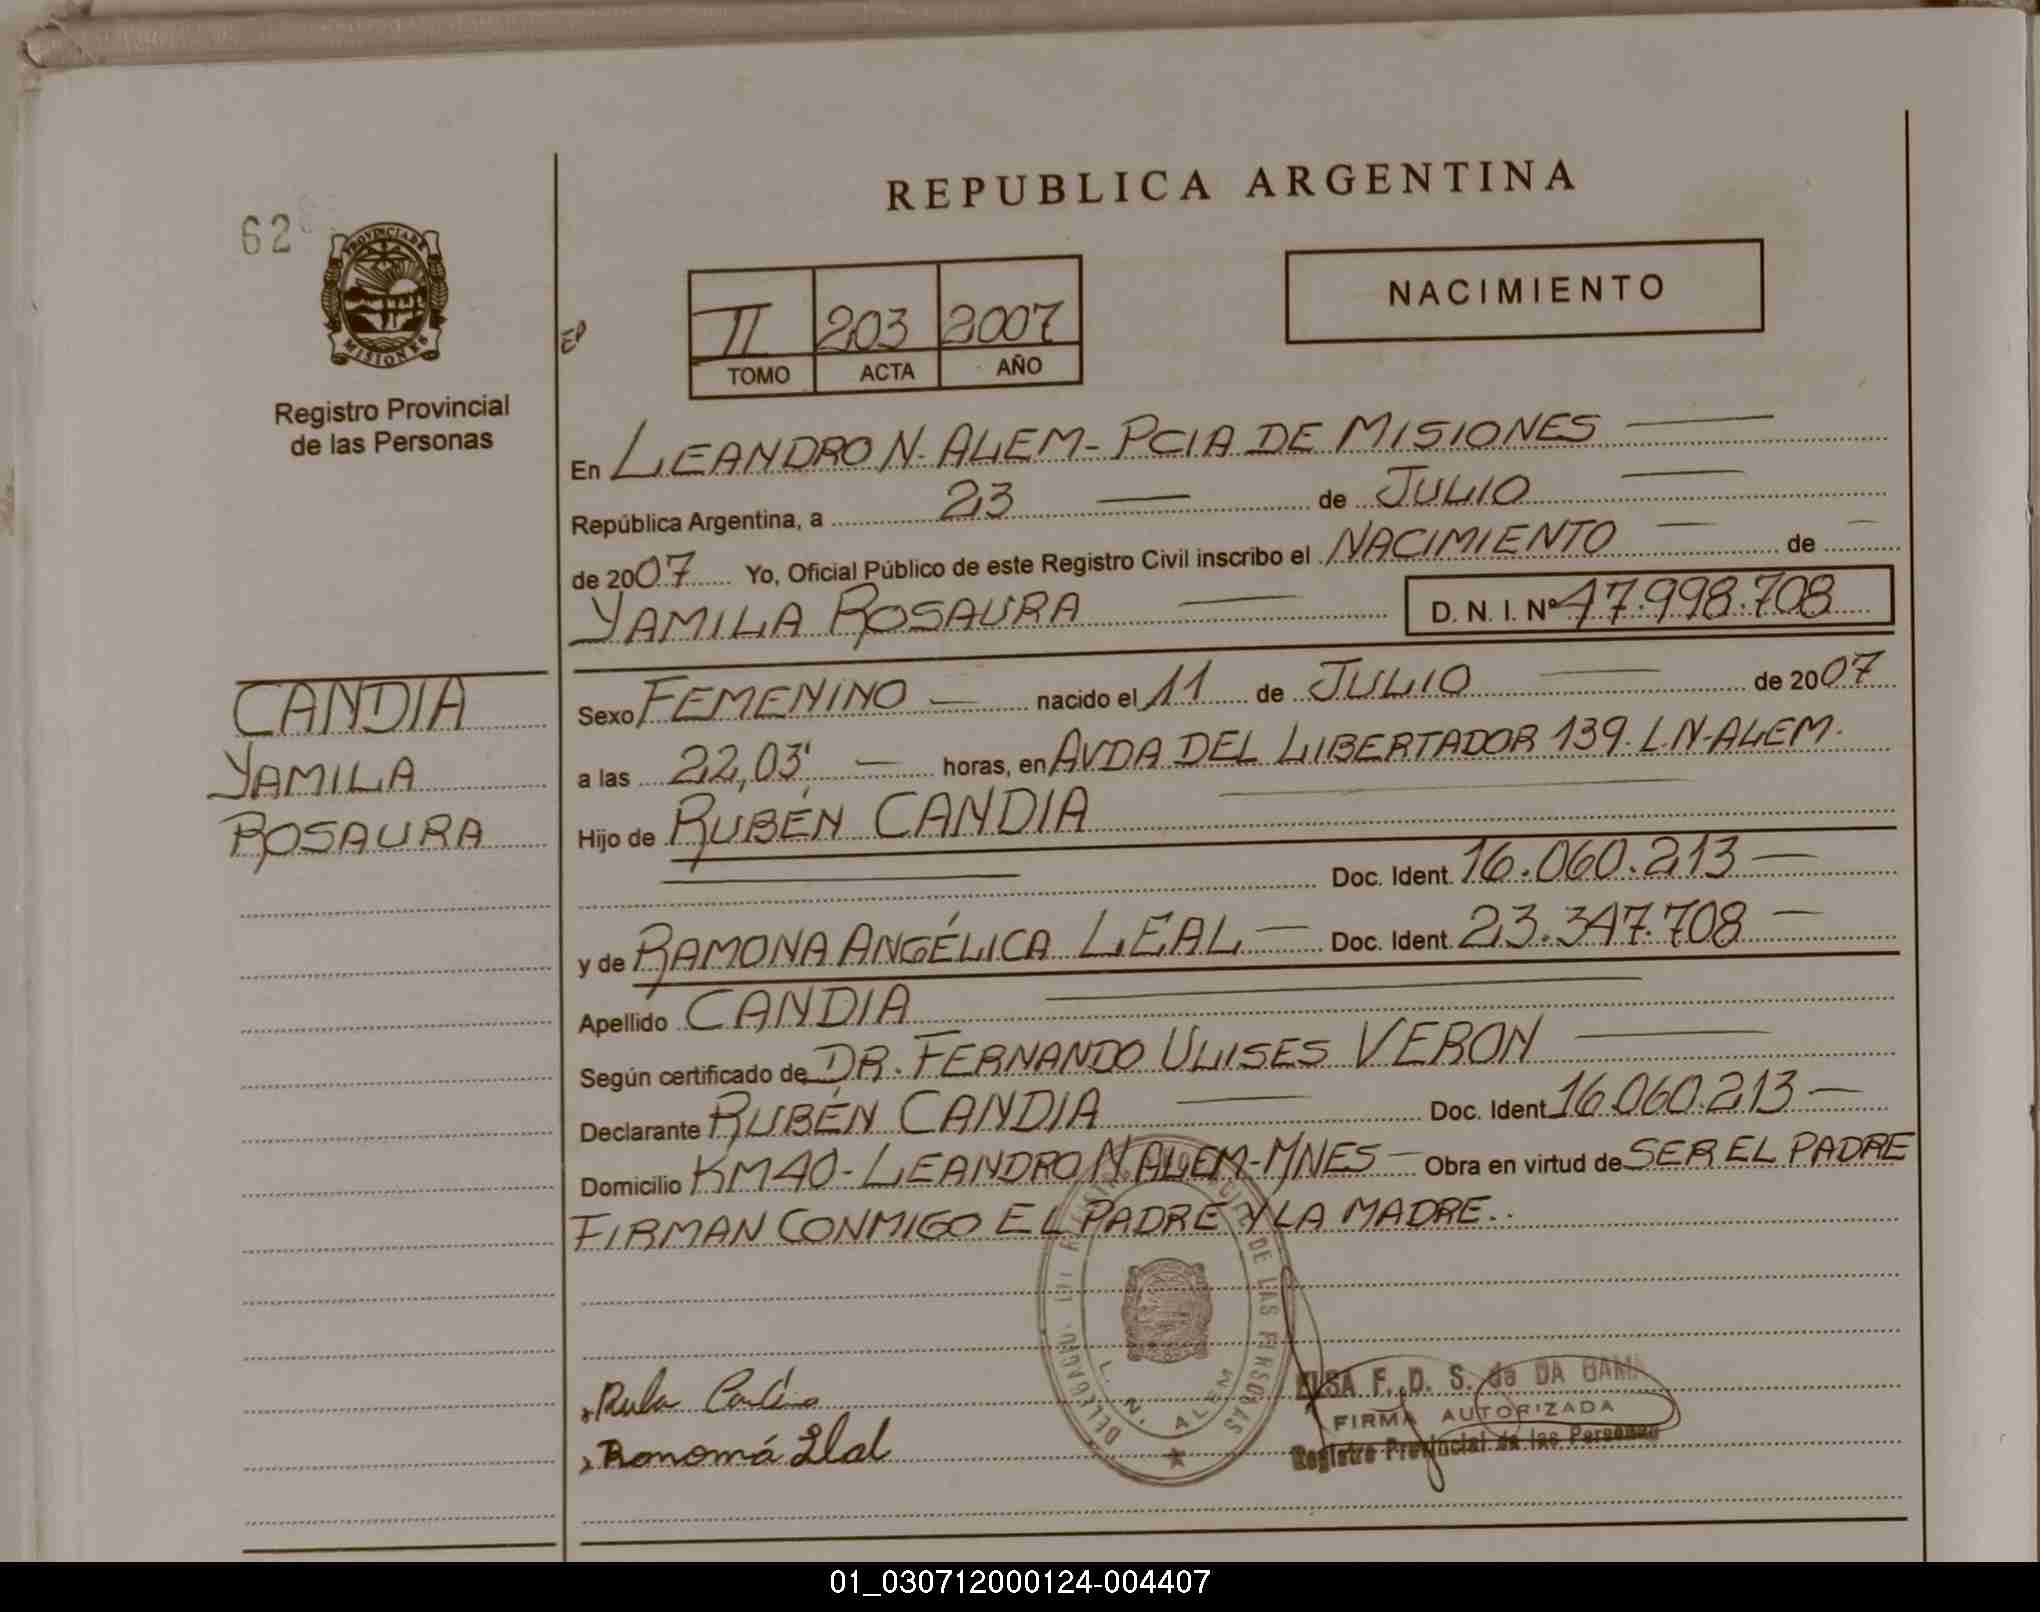 REPUBLICA ARGENTINA
62
PROVINCIA DE
MISIONES
Registro Provincial
de las Personas
II 203 2007
TOMO ACTA AÑO
NACIMIENTO
En LEANDRO N. ALEM - PCIA DE MISIONES
República Argentina, a 23 de JULIO
de 2007 Yo, Oficial Público de este Registro Civil inscribo el NACIMIENTO de
YAMILA ROSAURA D. N. I. Nº 47.998.708
CANDIA
YAMILA
ROSAURA
Sexo FEMENINO nacido el 11 de JULIO de 2007
a las 22,03' horas, en AVDA DEL LIBERTADOR 139. L.N-ALEM.
Hijo de RUBÉN CANDIA
Doc. Ident. 16.060.213
y de RAMONA ANGÉLICA LEAL Doc. Ident. 23.347.708
Apellido CANDIA
Según certificado de DR. FERNANDO ULISES VERON
Declarante RUBÉN CANDIA Doc. Ident 16.060.213
Domicilio KM40 - LEANDRO N ALEM - MNES Obra en virtud de SER EL PADRE
FIRMAN CONMIGO EL PADRE Y LA MADRE..
DE LAS PERSONAS
L. N. ALEM
ELSA F. D. S. de DA GAMA
FIRMA AUTORIZADA
Registro Provincial de las Personas
01_030712000124-004407